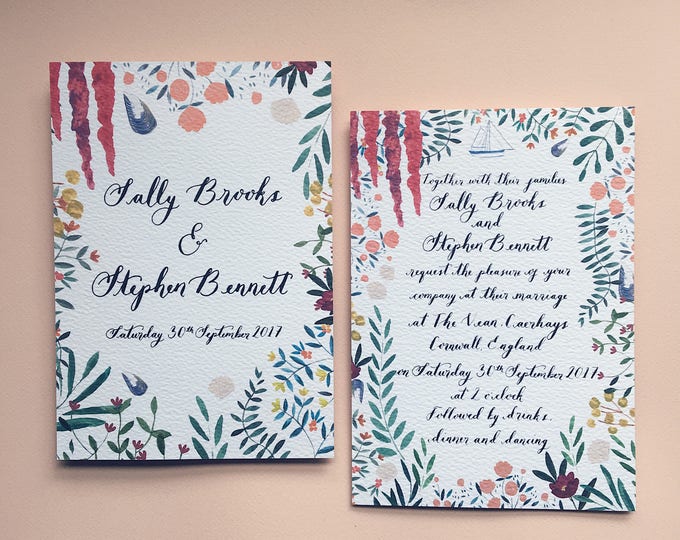 Sally Brooks
&
Stephen Bennett
Saturday 30th September 2017
Together with their families
Sally Brooks
and
Stephen Bennett
request the pleasure of your
company at their marriage
at The Vean, Caerhays
Cornwall, England
on Saturday 30th September 2017
at 2 o'clock
followed by drinks,
dinner and dancing